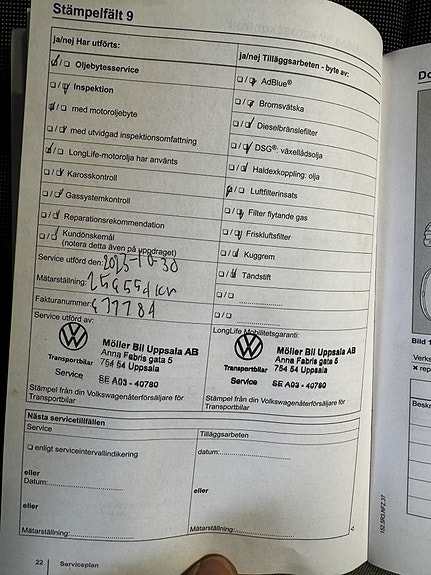 Stämpelfält 9
ja/nej Har utförts:
Oljebytesservice
Inspektion
med motoroljebyte
med utvidgad inspektionsomfattning
LongLife-motorolja har använts
Karosskontroll
Gassystemkontroll
Reparationsrekommendation
Kundönskemål
(notera detta även på uppdraget)
Service utförd den:
Mätarställning:
Fakturanummer:
Service utförd av:
Möller Bil Uppsala AB
Transportbilar Anna Fabris gata 5
754 54 Uppsala
Service SE A03 - 40780
Stämpel från din Volkswagenåterförsäljare för
Transportbilar
ja/nej Tilläggsarbeten - byte av:
AdBlue®
Bromsvätska
Dieselbränslefilter
DSG®: växellådsolja
Haldexkoppling: olja
Luftfilterinsats
Filter flytande gas
Friskluftsfilter
Kuggrem
Tändstift
LongLife Mobilitetsgaranti:
Möller Bil Uppsala AB
Transportbilar Anna Fabris gata 5
754 54 Uppsala
Service SE A03 - 40780
Stämpel från din Volkswagenåterförsäljare för
Transportbilar
Nästa servicetillfällen
Service
enligt serviceintervallindikering
eller
Datum:
eller
Mätarställning:
Tilläggsarbeten
datum:
eller
Mätarställning:
22 Serviceplan
152.5R3.NFZ.37
Bild 1